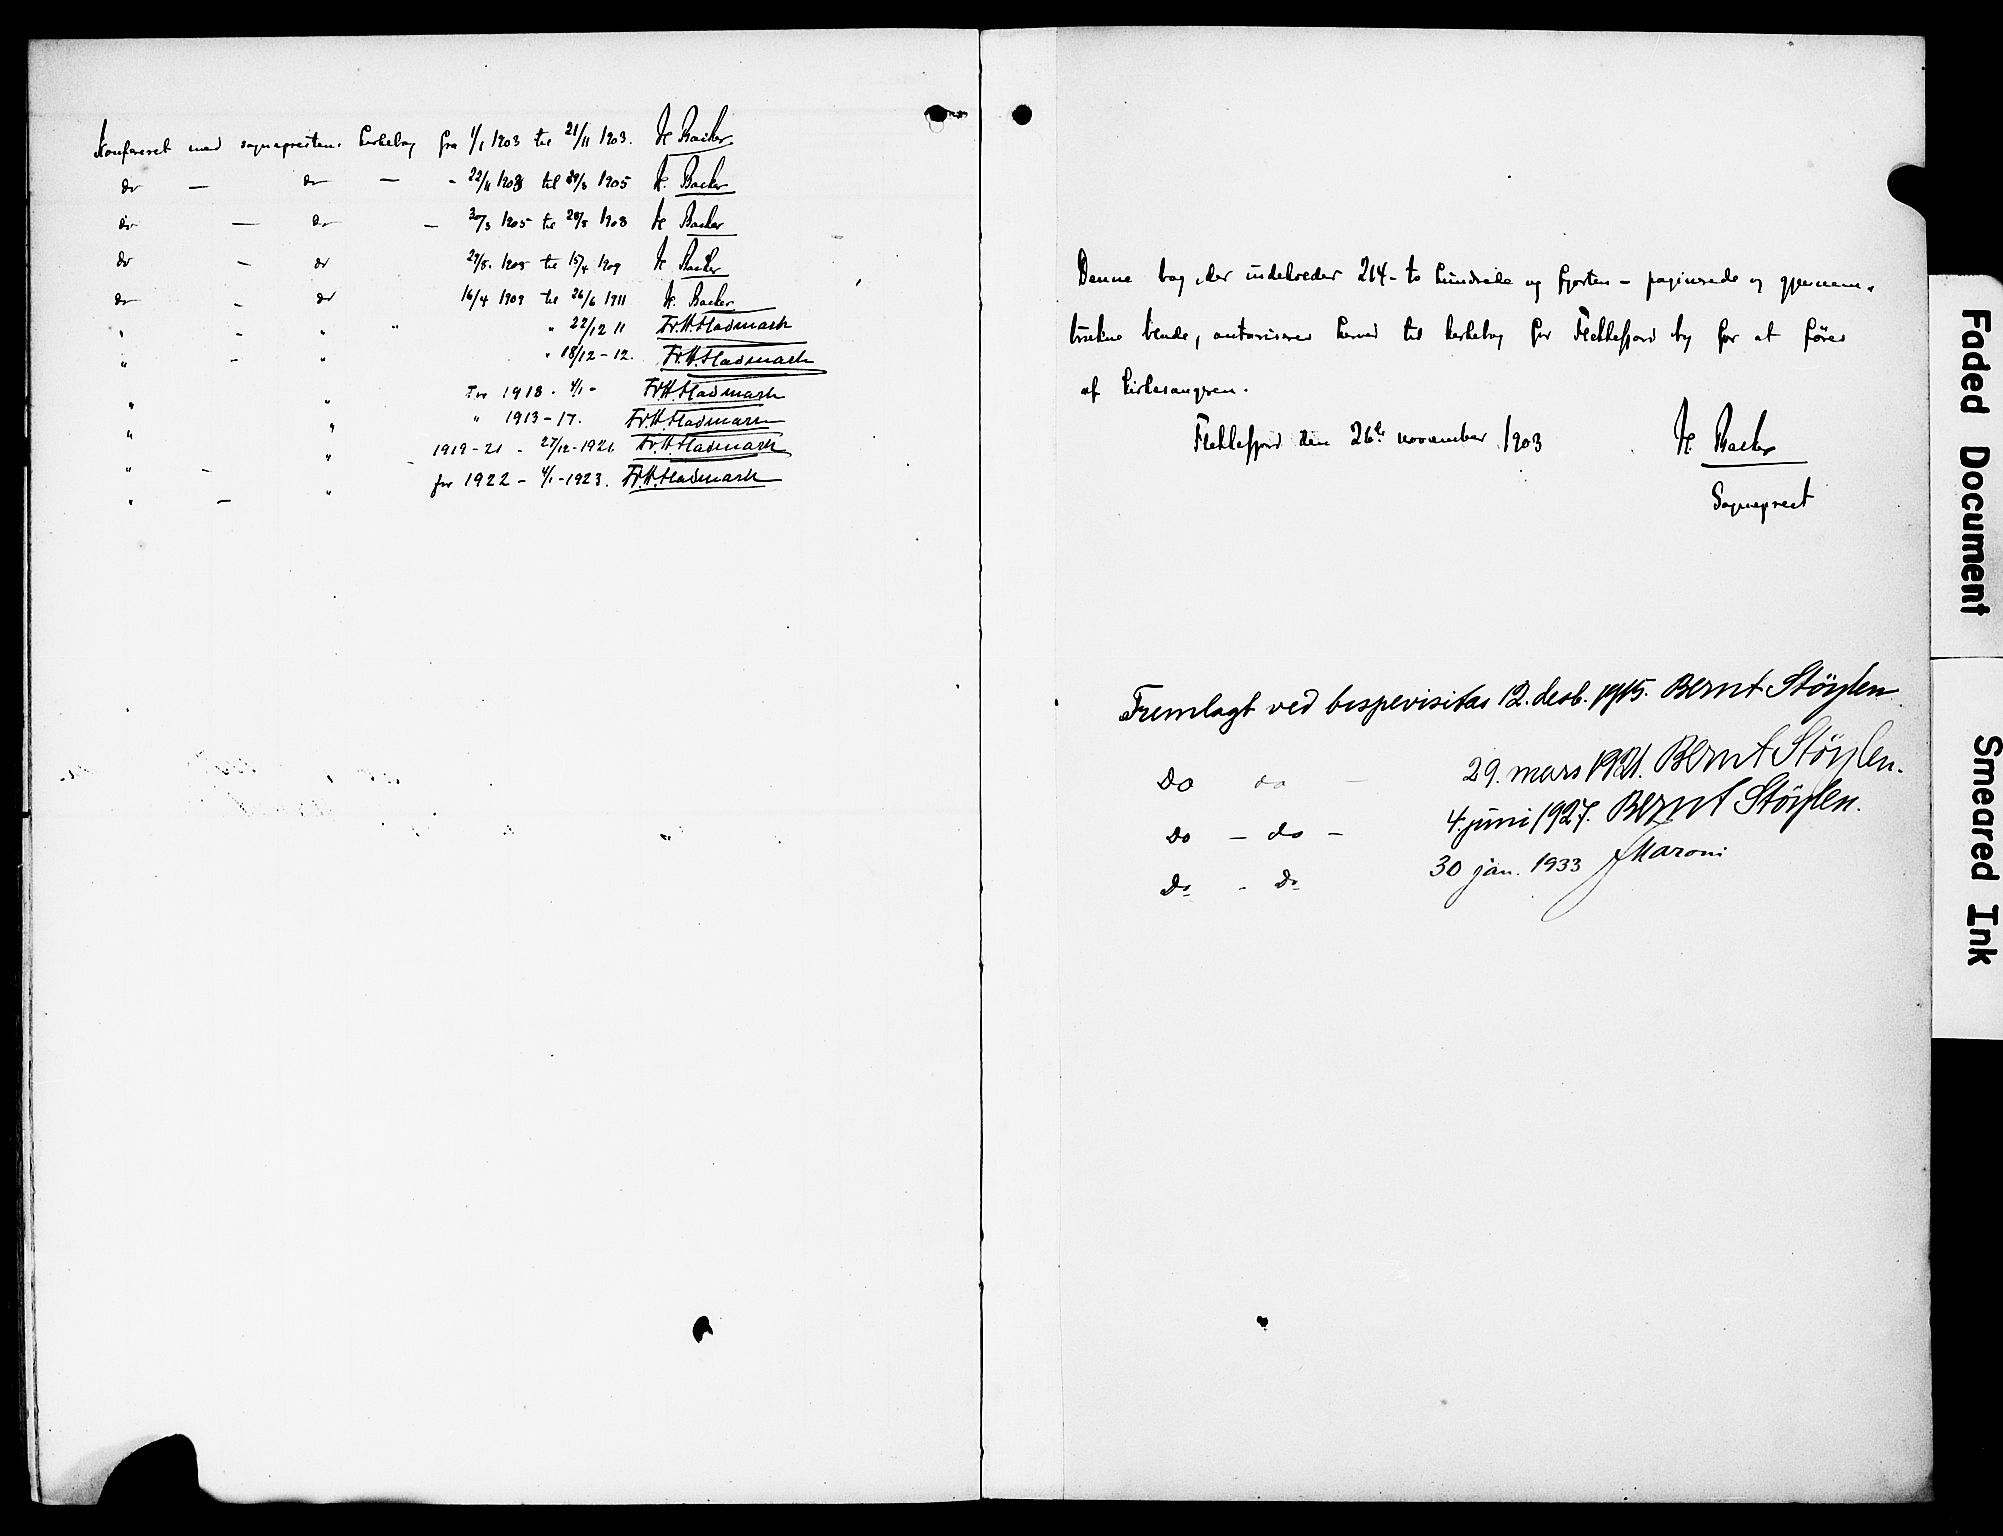 Konfereret med sogneprestens kirkebog fra 1/1 1903 til 21/11 1903. H. Backer
do — do — - 22/11 1903 til 29/3 1905 H. Backer
do — do — 30/3 1905 til 28/5 1908 H Backer
do - do 29/5. 1908 til 15/4 1909 H Backer
do - do 16/4 1909 til 26/6 1911 H. Backer
" - " " " 22/12 11 Fr.H.Hadmark
" - " " 18/12-12. Fr.H.Hadmark
" " For 1918. 4/1- Fr.H.Hadmark
" " " 1913-17. Fr.H.Hadmark
" - " - 1919-21 - 27/12-1921. Fr.H.Hadmark
" - " for 1922 - 4/1-1923. Fr.H.Hadmark
Denne bog, der indeholder 214 - to hundrede og fjorten - paginerede og gjennem-
trukne blade, autoriseres herved til kirkebog for Flekkefjord by for at føres
af kirkesangeren.
Flekkefjord den 26de november 1903 H. Backer
Sogneprest
Fremlagt ved bispevisitas 12. desb. 1915. Bernt Støylen
Do do — 29. mars 1921. Bernt Støylen.
Do — do — 4. juni 1927. Bernt Støylen.
Do - Do 30 jan. 1933 J Maroni
Faded Document
Smeared Ink